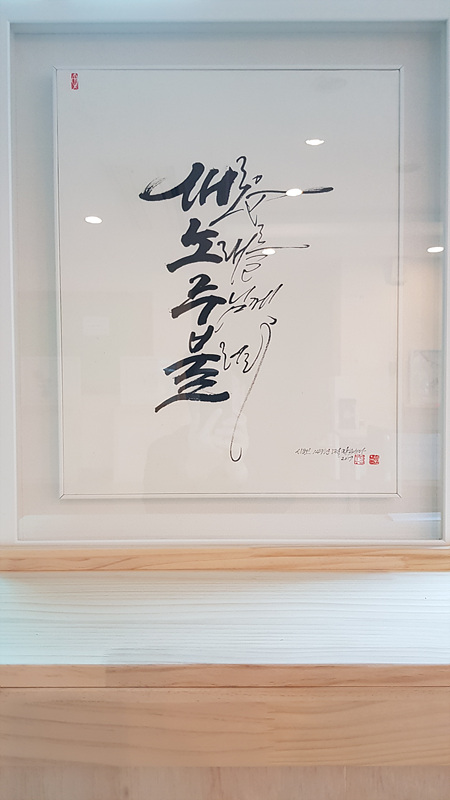 새로운
노래를
주님께
불러라
시편
2017